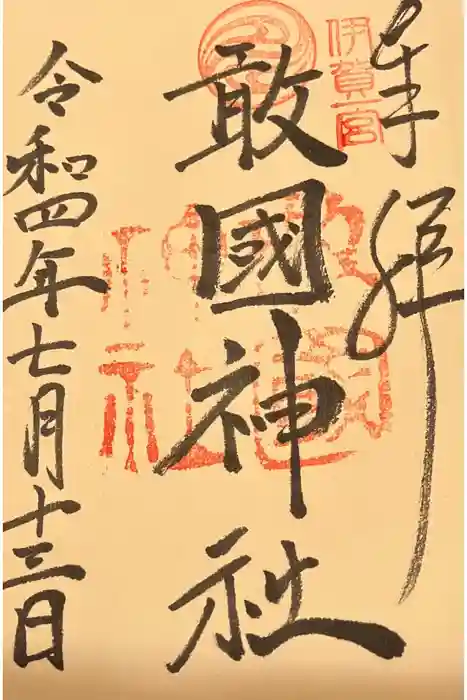 奉拝
伊賀一宮
敢國神社
令和四年七月十三日